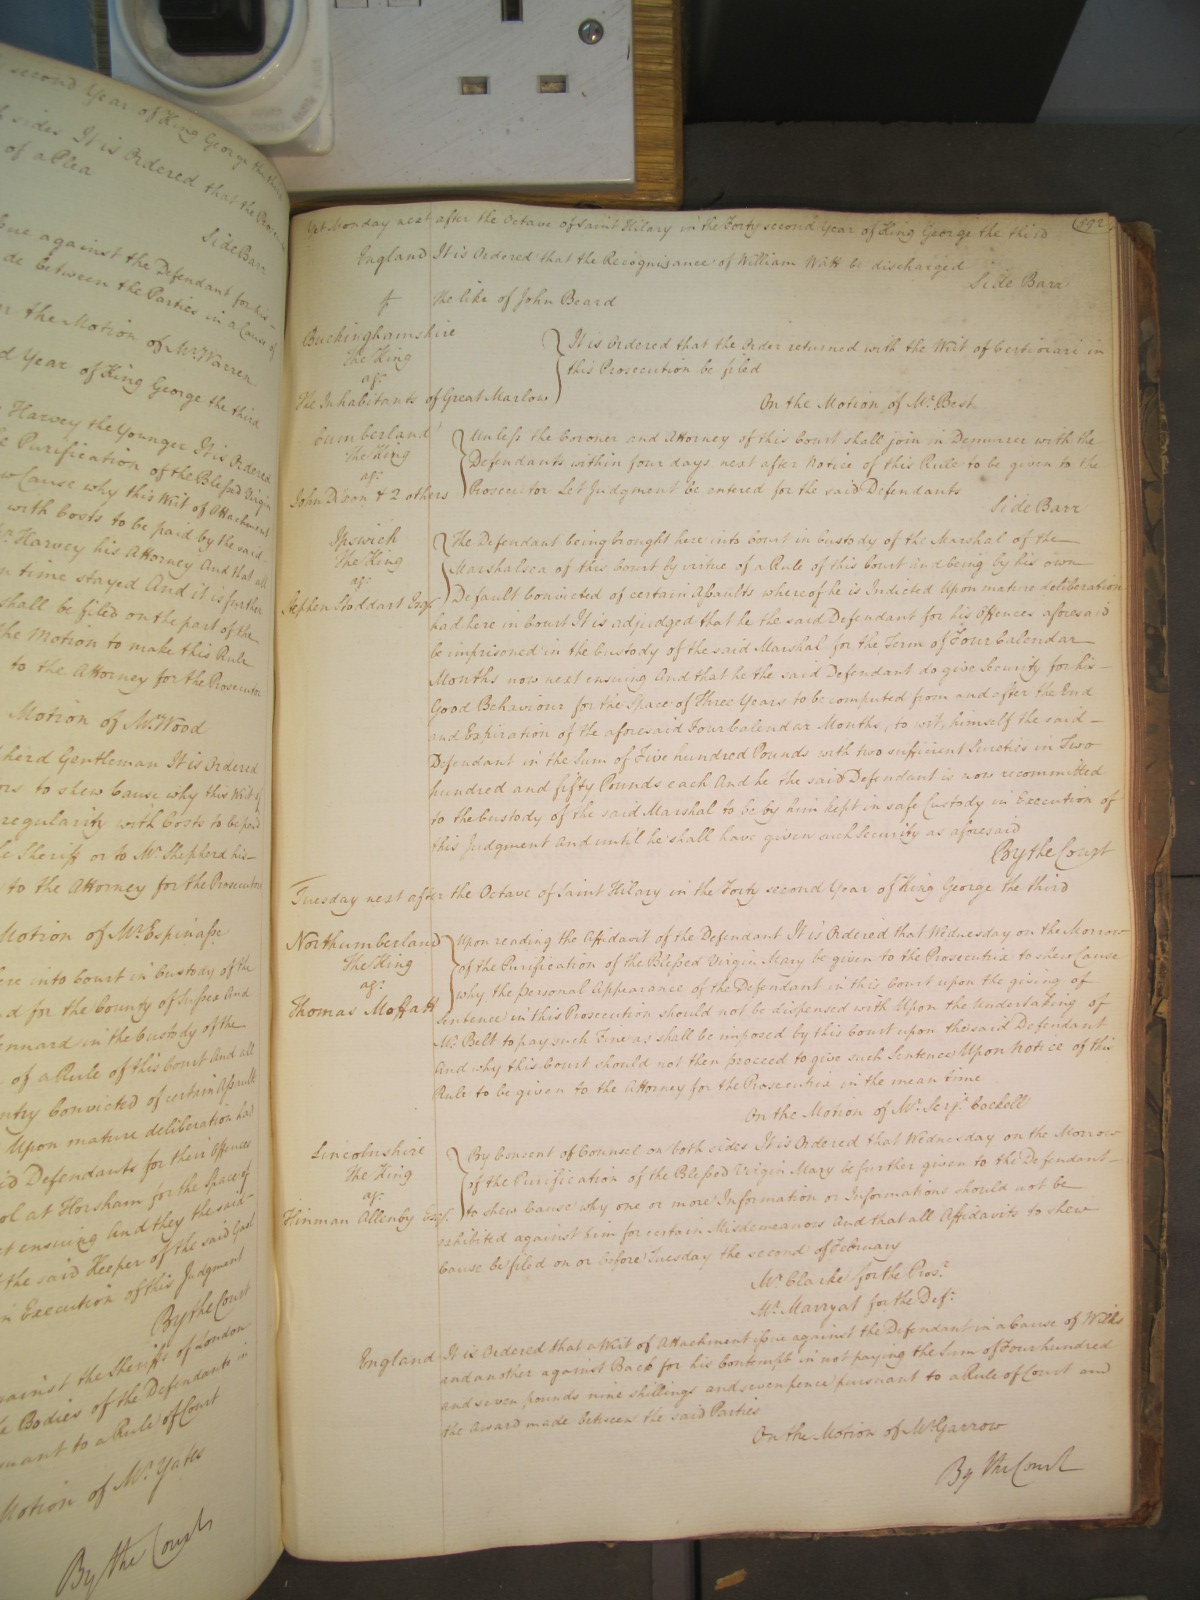 second Year of King George the third
sides It is Ordered that the
of a Plea
Side Barr
against the Defendant for his
de between the Parties in a Cause of
the Motion of Mr. Warren
d Year of King George the third
Harvey the Younger It is Ordered
Purification of the Blessed Virgin
w Cause why this Writ of Attachment
with Costs to be paid by the said
Mr. Harvey his Attorney And that all
time stayed And it is further
shall be filed on the part of the
the Motion to make this Rule
to the Attorney for the Prosecutor
Motion of Mr. Wood
herd Gentleman It is Ordered
ors to shew Cause why this Writ of
regularity with Costs to be paid
Sheriff or to Mr. Shepherd his
to the Attorney for the Prosecutors
Motion of Mr. Espinasse
ere into Court in Custody of the
d for the County of Sussex And
ennard in the Custody of the
of a Rule of this Court And all
ntry Convicted of certain Assault
Upon mature deliberation had
Defendants for their Offences
ol at Horsham for the Space of
et ensuing And they the said
the said Keeper of the said Gaol
in Execution of this Judgment
By the Court
against the Sheriffs of London
Bodies of the Defendants in
uant to a Rule of Court
Motion of Mr. Yates
By the Court
Yet Monday next after the Octave of Saint Hilary in the Forty second Year of King George the third
(592)
England It is Ordered that the Recognisance of William Watt be discharged
Side Barr
The like of John Beard
Buckinghamshire
The King
agt.
The Inhabitants of Great Marlow
It is Ordered that the Order returned with the Writ of Certiorari in
this Prosecution be filed
On the Motion of Mr. Best
Cumberland
The King
agt.
John Dixon & 2 others
Unless the Coroner and Attorney of this Court shall join in Demurrer with the
Defendants within four days next after Notice of this Rule to be given to the
Prosecutor Let Judgment be entered for the said Defendants
Side Barr
Ipswich
The King
agt.
Stephen Stoddart Esqr.
The Defendant being brought here into Court in Custody of the Marshal of the
Marshalsea of this Court by virtue of a Rule of this Court and being by his own
Default Convicted of certain Assaults whereof he is Indicted Upon mature deliberation
had here in Court It is adjudged that he the said Defendant for his Offences aforesaid
be imprisoned in the Custody of the said Marshal for the Term of Four Calendar
Months now next ensuing And that he the said Defendant do give Security for his
Good Behaviour for the Space of Three Years to be computed from and after the End
and Expiration of the aforesaid Four Calendar Months, to wit, himself the said
Defendant in the Sum of Five hundred Pounds with two sufficient Sureties in Two
hundred and fifty Pounds each And he the said Defendant is now recommitted
to the Custody of the said Marshal to be by him kept in safe Custody in Execution of
this Judgment And until he shall have given such Security as aforesaid
By the Court
Tuesday next after the Octave of Saint Hilary in the Forty second Year of King George the third
Northumberland
The King
agt.
Thomas Moffatt
Upon reading the Affidavit of the Defendant It is Ordered that Wednesday on the Morrow
of the Purification of the Blessed Virgin Mary be given to the Prosecutrix to shew Cause
why the personal Appearance of the Defendant in this Court upon the giving of
Sentence in this Prosecution should not be dispensed with Upon the Undertaking of
Mr. Belt to pay such Fine as shall be imposed by this Court upon the said Defendant
And why this Court should not then proceed to give such Sentence Upon Notice of this
Rule to be given to the Attorney for the Prosecutrix in the mean time
On the Motion of Mr. Serjt. Cockell
Lincolnshire
The King
agt.
Hinman Allenby Esqr.
By Consent of Counsel on both sides It is Ordered that Wednesday on the Morrow
of the Purification of the Blessed Virgin Mary be further given to the Defendant
to shew Cause why one or more Information or Informations should not be
exhibited against him for certain Misdemeanors And that all Affidavits to shew
Cause be filed on or before Tuesday the second of February
Mr. Clarke for the Prosr.
Mr. Marryat for the Deft.
England It is Ordered that a Writ of Attachment issue against the Defendant in a Cause of Wills
and another against Back for his Contempt in not paying the Sum of Four hundred
and seven pounds nine shillings and seven pence pursuant to a Rule of Court and
the Award made between the said Parties
On the Motion of Mr. Garrow
By the Court